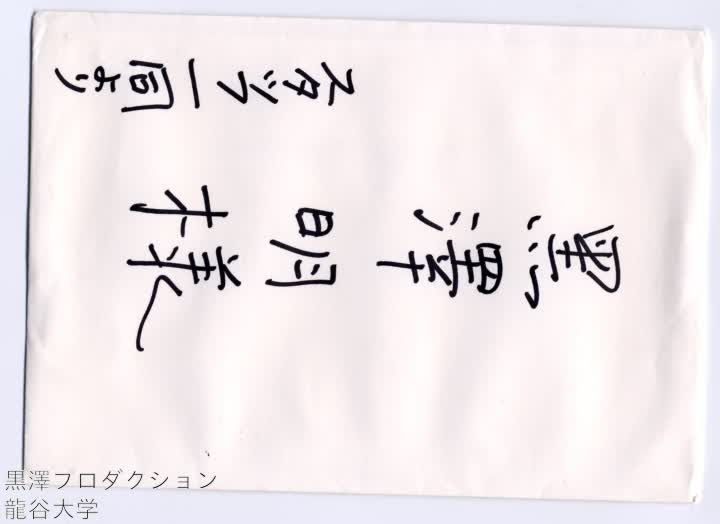 黒澤明様
スタッフ一同より
黒澤プロダクション
龍谷大学